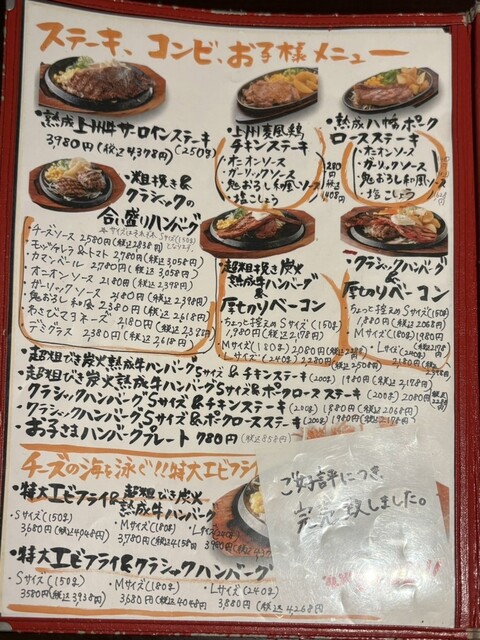 ステーキ、コンビ、お子様メニュー
・熟成上州牛サーロインステーキ
3980円(税込4,378円)(250g)
・上州麦風鶏
チキンステーキ
・オニオンソース
・ガーリックソース
・鬼おろし和風ソース
・塩こしょう
・熟成八幡ポーク
ロースステーキ
・オニオンソース
・ガーリックソース
・鬼おろし和風ソース
・塩こしょう
・粗挽き&
クラシックの
合い盛りハンバーグ
チーズソース 2580円(税込2838円)
モッツァレラ&トマト 2780円(税込3,058円)
カマンベール 2780円(税込3,058円)
オニオンソース 2180円(税込2,398円)
ガーリックソース 2180円(税込2,398円)
鬼おろし和風 2380円(税込2,618円)
わさびマヨネーズ 2180円(税込2,398円)
デミグラス 2380円(税込2,618円)
・超粗挽き炭火
熟成牛ハンバーグ
&
厚切りベーコン
ちょっと控えめSサイズ(150g)
1,980円(税込2,178円)
Mサイズ(180g)2080円
Lサイズ(240g)2280円(税込2508円)
・クラシックハンバーグ
&
厚切りベーコン
ちょっと控えめSサイズ(150g)
1,880円(税込2068円)
Mサイズ(180g)1980円
(税込2178円)
Lサイズ(240g)
2180円(税込2398円)
・超粗びき炭火熟成牛ハンバーグSサイズ&チキンステーキ(200g)1980円(税込2,178円)
・超粗びき炭火熟成牛ハンバーグSサイズ&ポークロースステーキ(200g)2080円(税込2288円)
・クラシックハンバーグSサイズ&チキンステーキ(200g)1,880円(税込2068円)
・クラシックハンバーグSサイズ&ポークロースステーキ(200g)1980円(税込2,178円)
・お子さまハンバーグプレート 780円(税込858円)
チーズの海を泳ぐ!!特大エビフライ
・特大エビフライ&超粗びき炭火
熟成牛ハンバーグ
・Sサイズ(150g)
3680円(税込4048円)
・Mサイズ(180g)
3,780円(税込4158円)
・特大エビフライ&クラシックハンバーグ
・Sサイズ(150g)
3580円(税込3938円)
・Mサイズ(180g)
3,680円(税込4048円)
・Lサイズ(240g)
3,880円(税込4268円)
ご好評につき
完売致しました。